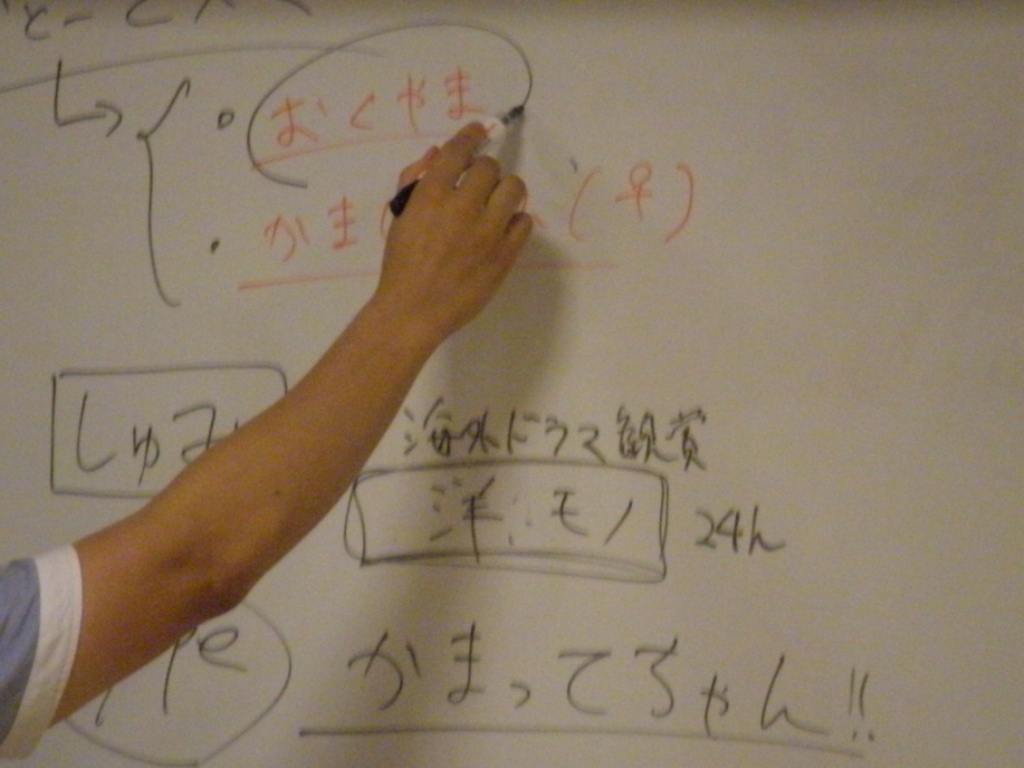 おくやま
かま(♀)
しゅみ
海外ドラマ観賞
洋モノ 24h
かまってちゃん!!